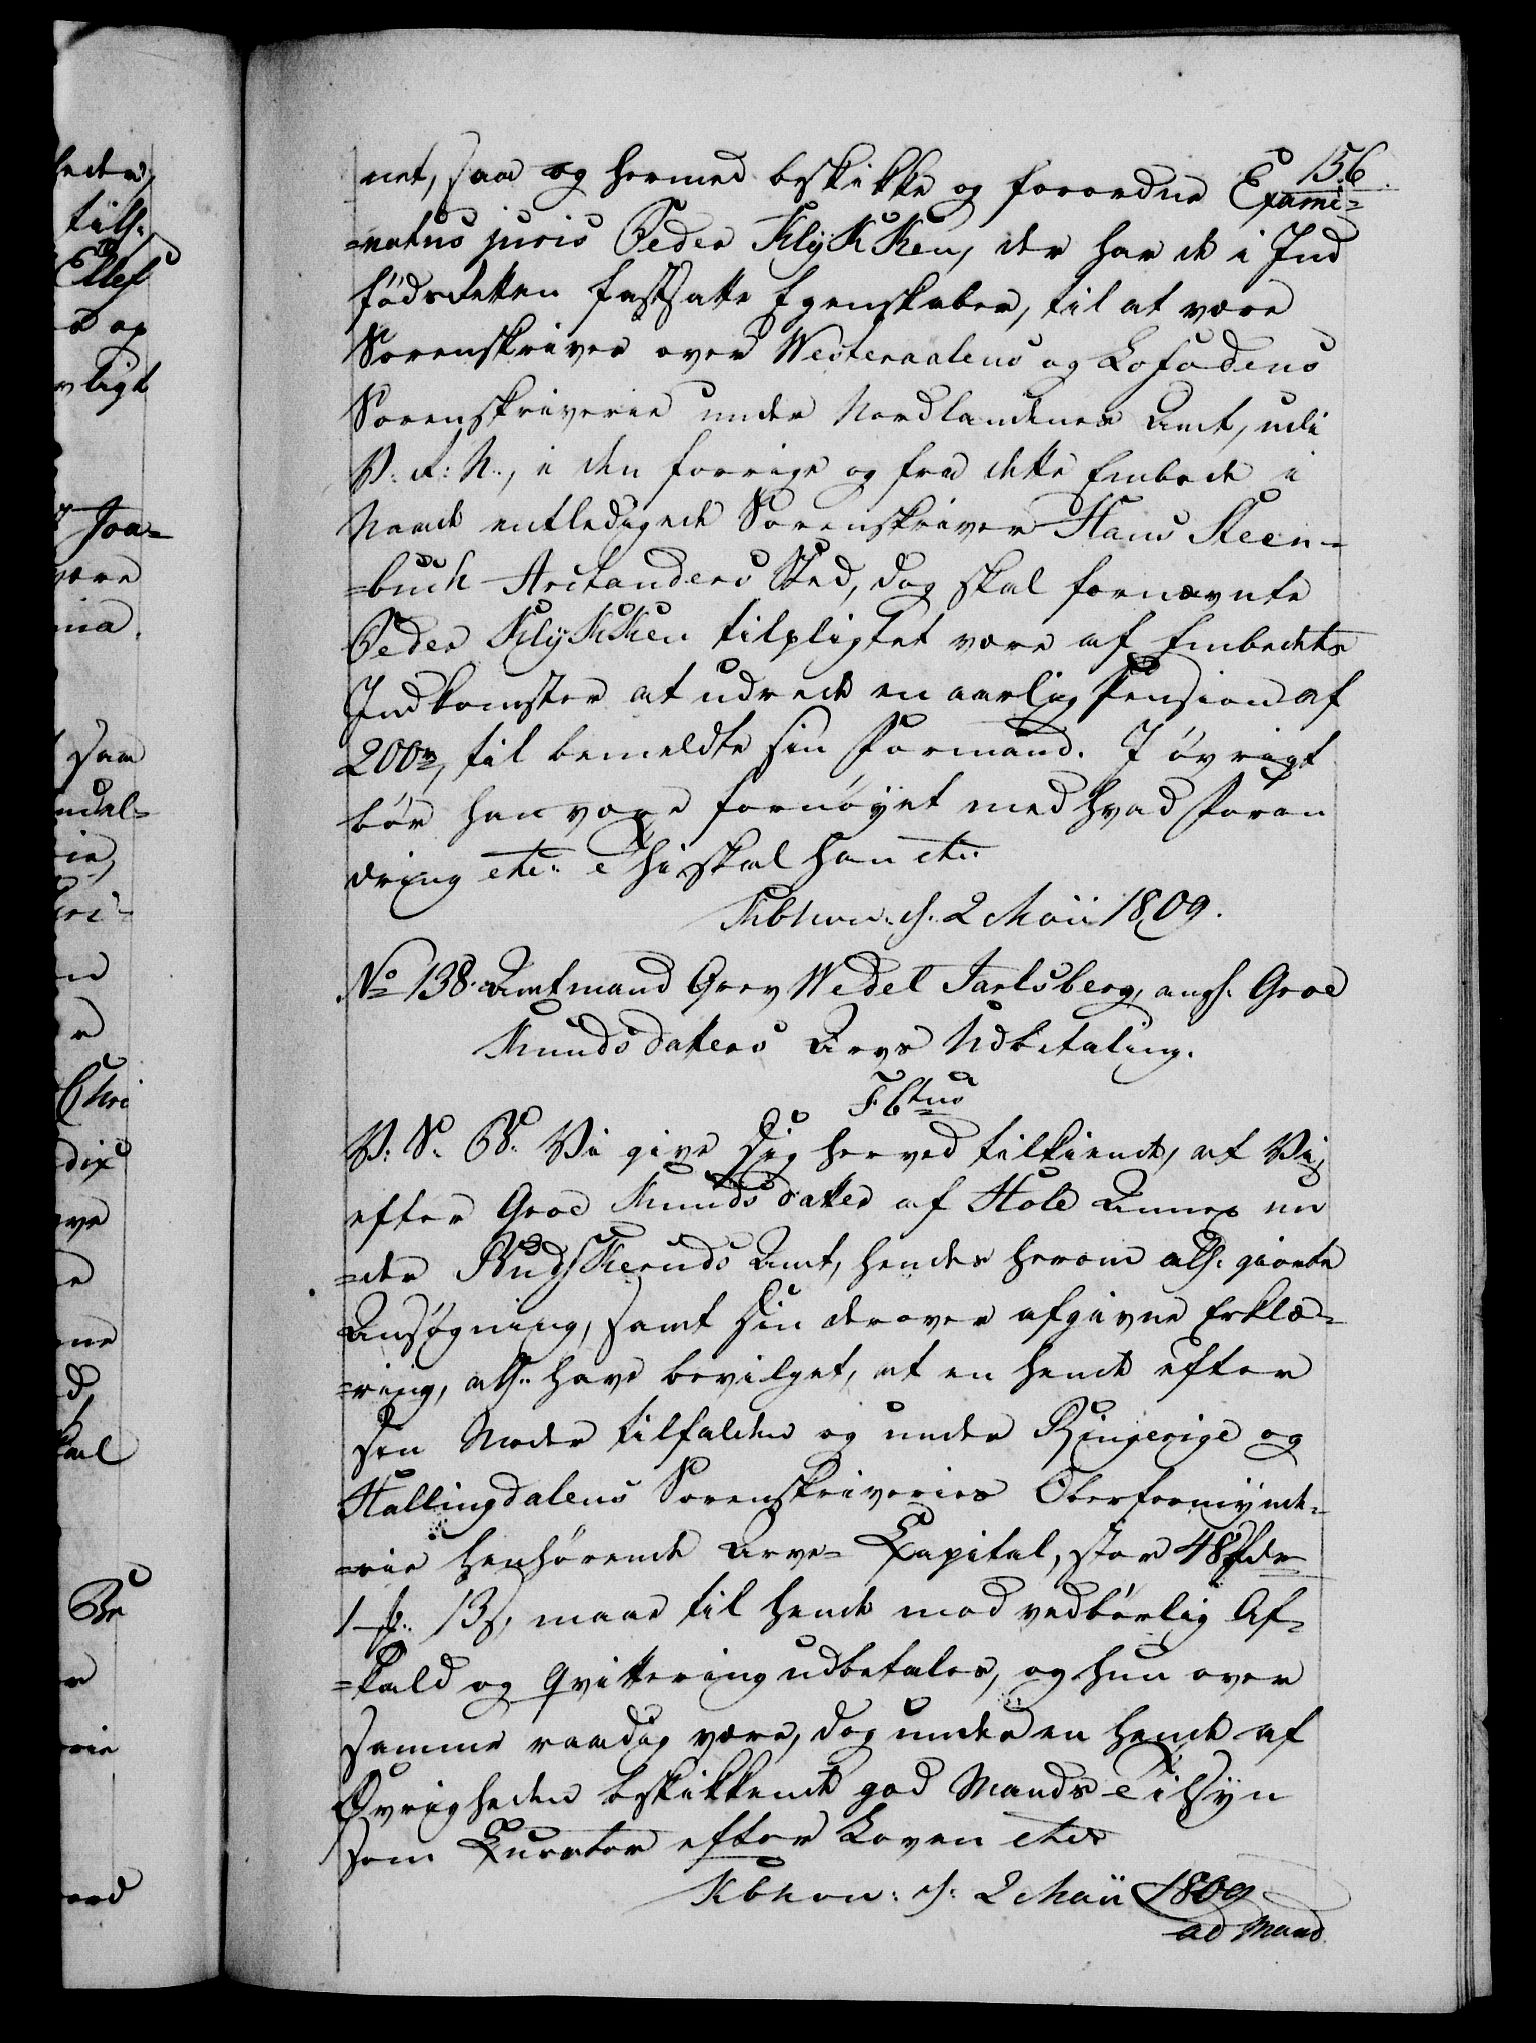 156
net, saa og hermed beskikke og forordne Exami-
=natus juris Peder KlykKen, der har de i Ind
födsretten fastsatte Egenskaber, til at være
Sorenskriver over Westeraalens og Lofodens
Sorenskriverie under Nordlandenes Amt, udi
V. R: N., i den forrige og fra dette Embede i
Naade entledigede Sorenskriver Hans Steen-
=buch Arctanders Sted, dog skal fornævnte
Peder KlykKen tilpligtet være af Embedets
Indkomster at udrede en aarlig Pension af
200 rd, til bemeldte sin Formand. I övrigt
bör han være fornöyet med hvad Foran
dring etc: Thi skal han etc:
Kbhavn. d. 2 Maii 1809.
No 138. Amtmand Grev Wedel Jarlsberg, angl. Groe
Knudsdatters Arvs Udbetaling.
F. 6tus
V. S. G. Vi give Dig herved tilkiende, at Vi,
efter Groe Knudsdatter af Hole Annex un
=der Budskeruds Amt, hendes herom alls. giorte
Ansøgning, samt Din derover afgivne Erklæ-
=ring, alls. have bevilget, at en hende efter
sin Moder tilfalden og under Ringerige og
Hallingdalens Sorenskriveries Overformynde-
=rie henhørende Arve= Kapital, stor 48 Rdr
1 ß. 13 s, maae til hende mod vedbörlig Af-
=kald og Qvittering udbetales, og hun over
samme raadig være, dog under en hende af
Øvrigheden beskikkende god Mands Tilsyn
som Kurator efter Loven etc
Kbhavn: d: 2 Maii 1809
ad Mand.